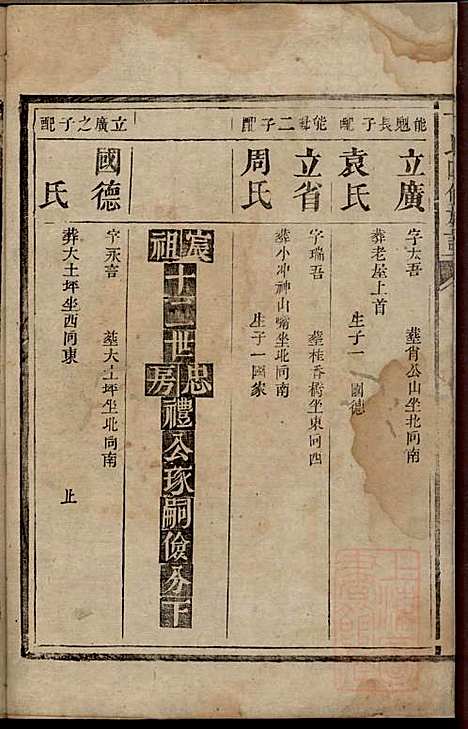 能魁長子配
立廣
字大吾 葬肯公山坐北向南
袁氏
葬老屋上首 生子一 國德
能 二子配
立省
字瑞吾 葬桂香橋坐東向西
周氏
葬小冲神山嘴坐北向南 生子一國象
袁祖
十二世
忠房
禮公琢嗣儉分下
立廣之子配
國德
字永言 葬大土坪坐北向南
氏
葬大土坪坐西向東 止